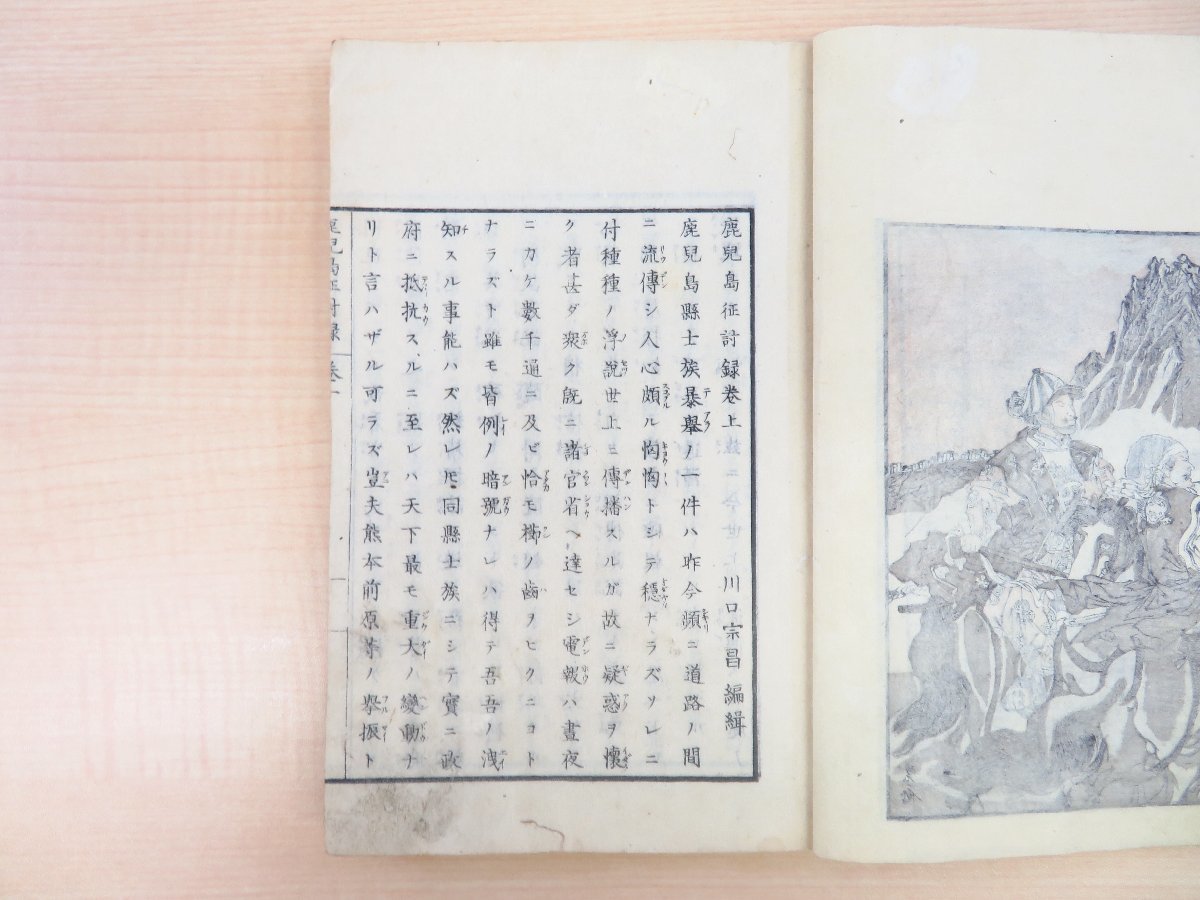 鹿兒島征討録巻上 川口宗昌 編緝
鹿兒島縣士族暴擧ノ一件ハ昨今頻ニ道路ノ間
ニ流傳シ人心頗ル恟恟トシテ穩ナラズソレニ
付種種ノ浮説世上ニ傳播スルガ故ニ疑惑ヲ懷
ク者甚ダ衆ク既ニ諸官省ヘ達セシ電報ハ晝夜
ニカケ數千通ニ及ビ恰モ櫛ノ齒ヲヒクニコト
ナラズト雖モ皆例ノ暗號ナレハ得テ吾吾ノ洩
知スル事能ハズ然レ𪜈同縣士族ニシテ實ニ政
府ニ抵抗スルニ至レハ天下最モ重大ノ變動ナ
リト言ハザル可ラズ豈夫熊本前原等ノ擧振ト
鹿兒島征討録 巻一